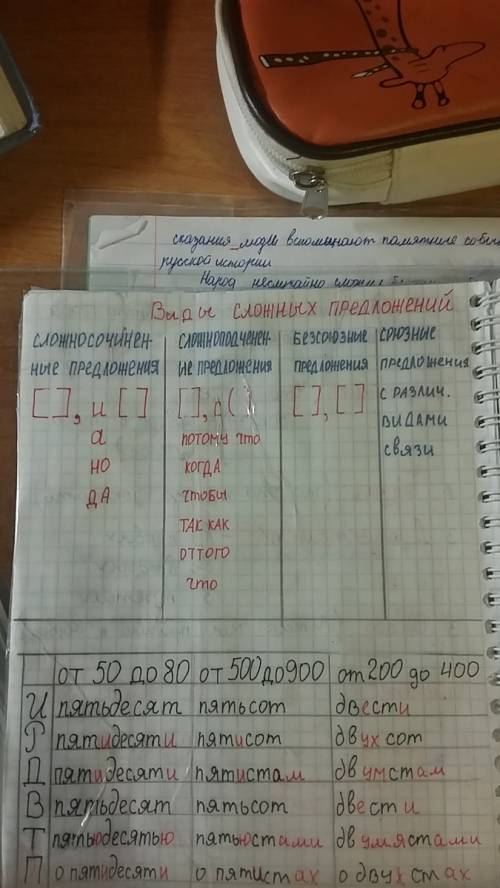 сказания людье вспоминают памятные собы
русской истории
Народ неслучайно
Виды сложных предложений
сложносочинен-
ные предложения
[ ], и [ ]
а
но
да
сложноподчинен-
ие предложения
[ ], с( )
потому что
когда
чтобы
так как
оттого
что
безсоюзные
предложения
[ ], [ ]
союзные
предложения
с различ.
видами
связи
от 50 до 80 от 500 до 900 от 200 до 400
И пятьдесят пятьсот двести
Р пятидесяти пятисот двух сот
Д пятидесяти пятистам двумстам
В пятьдесят пятьсот двести
Т пятьюдесятью пятьюстами двумястами
П о пятидесяти о пятистах о двух стах